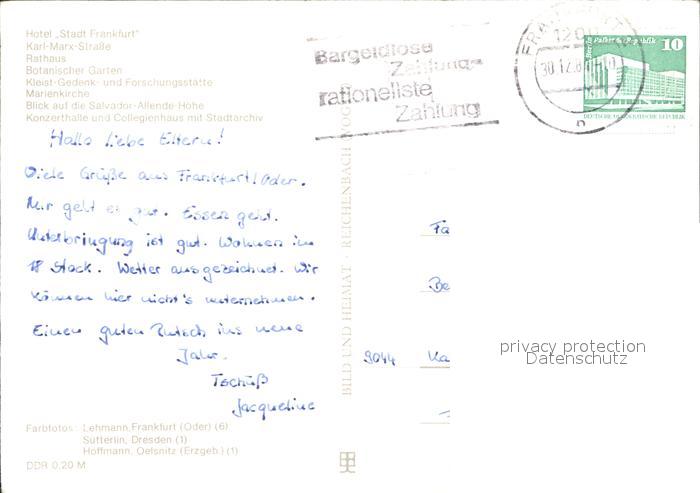 Hotel „Stadt Frankfurt"
Karl-Marx-Straße
Rathaus
Botanischer Garten
Kleist-Gedenk- und Forschungsstätte
Marienkirche
Blick auf die Salvador-Allende-Höhe
Konzerthalle und Collegienhaus mit Stadtarchiv
Hallo liebe Eltern!
Viele Grüße aus Frankfurt/Oder.
Mir geht es gut. Essen geht.
Unterbringung ist gut. Wohnen im
18 Stock. Wetter ausgezeichnet. Wir
können hier nicht's unternehmen.
Einen guten Rutsch ins neue
Jahr.
Tschüß
Jacqueline
Farbfotos: Lehmann, Frankfurt (Oder) (6)
Sutterlin, Dresden (1)
Hoffmann, Oelsnitz (Erzgeb.) (1)
DDR 0,20 M
BILD UND HEIMAT · REICHENBACH
Bargeldlose
Zahlung-
rationellste
Zahlung
1200
30.12.8
Berlin, Palast der Republik
10
DEUTSCHE DEMOKRATISCHE REPUBLIK
Fa
Be
9044 Ka
privacy protection
Datenschutz